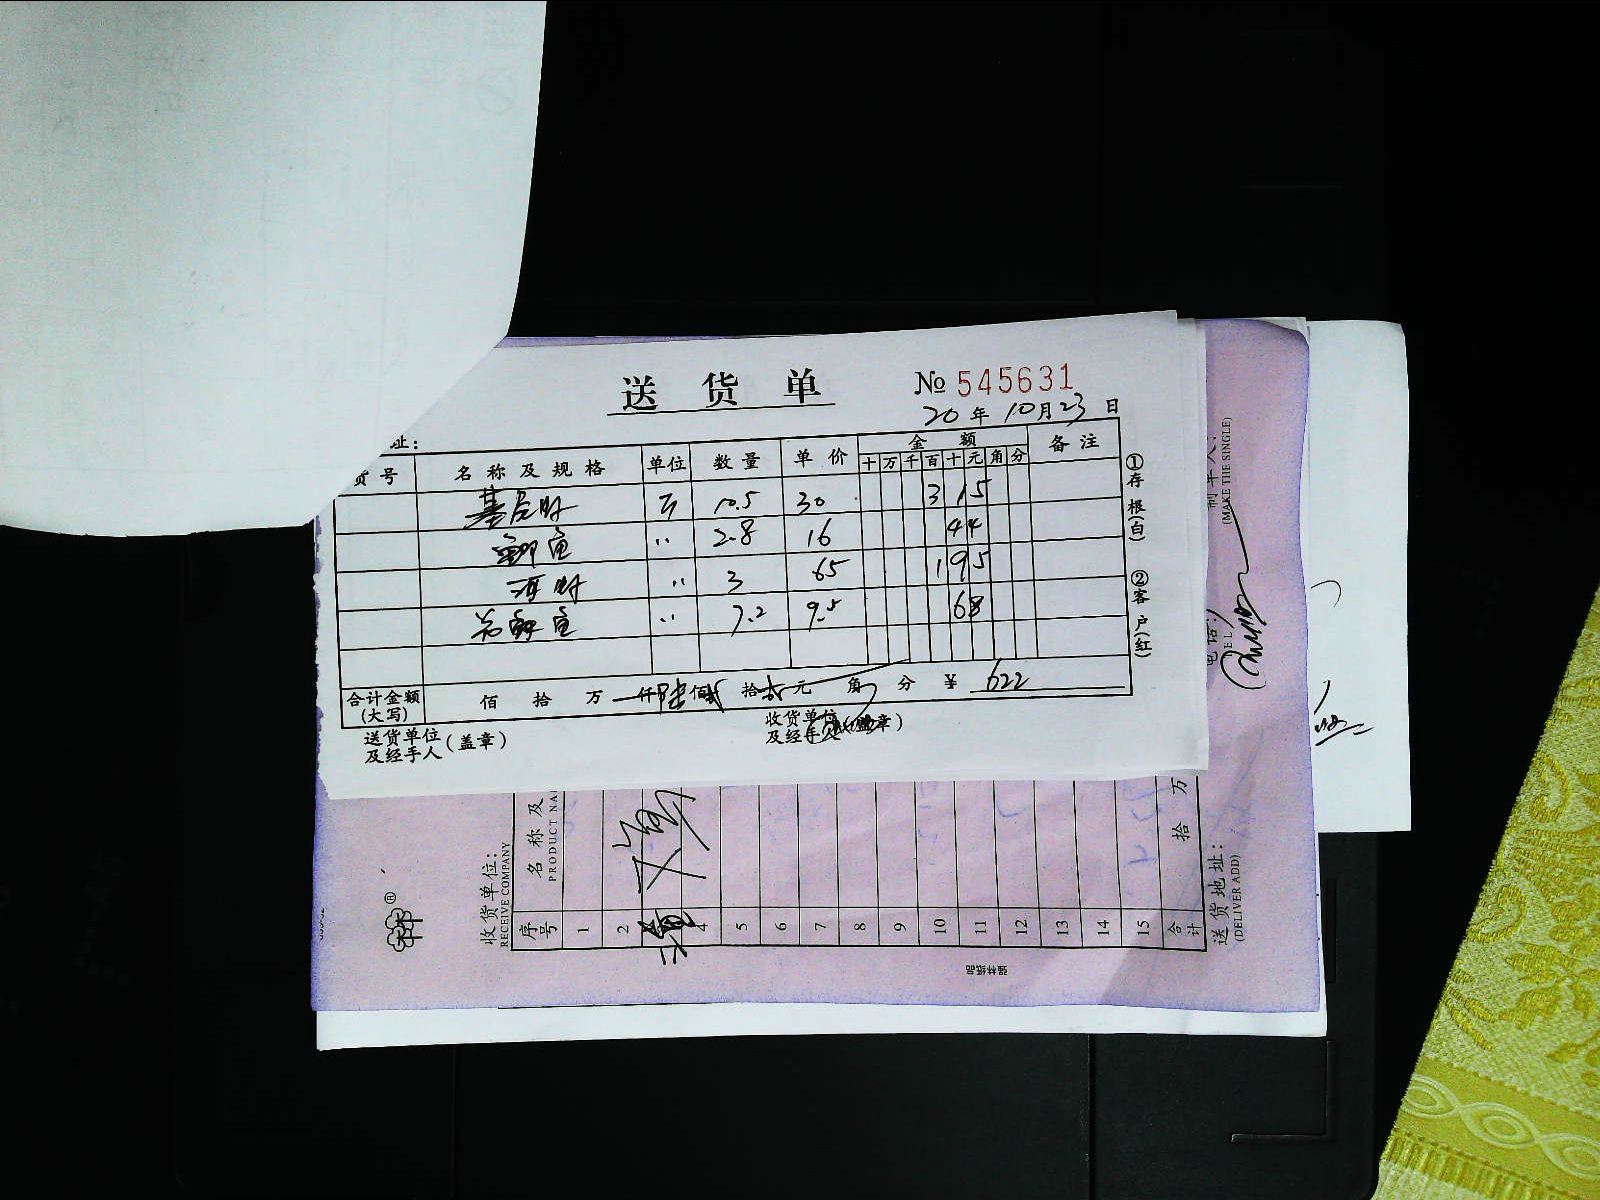 送 货 单
№ 545631
20 年 10 月 23 日
址：
货号 名称及规格 单位 数量 单价 金额 备注
十 万 千 百 十 元 角 分
基尾虾 斤 10.5 30 315
鲫鱼 〃 2.8 16 44
河虾 〃 3 65 195
鱼 〃 7.2 9.5 68
合计金额（大写） 佰 拾 万 仟 陆 佰 贰 拾 贰 元 角 分 ¥ 622
送货单位及经手人（盖章）
收货单位及经手人（盖章）
①存根（白） ②客户（红）
收货单位：
RECEIVE COMPANY
序号 名称及
PRODUCT NA
1
2
4
5
6
7
8
9
10
11
12
13
14
15
合计 拾 万
送货地址：
(DELIVER ADD)
电话：
(MAKE THE SINGLE)
强林纸品